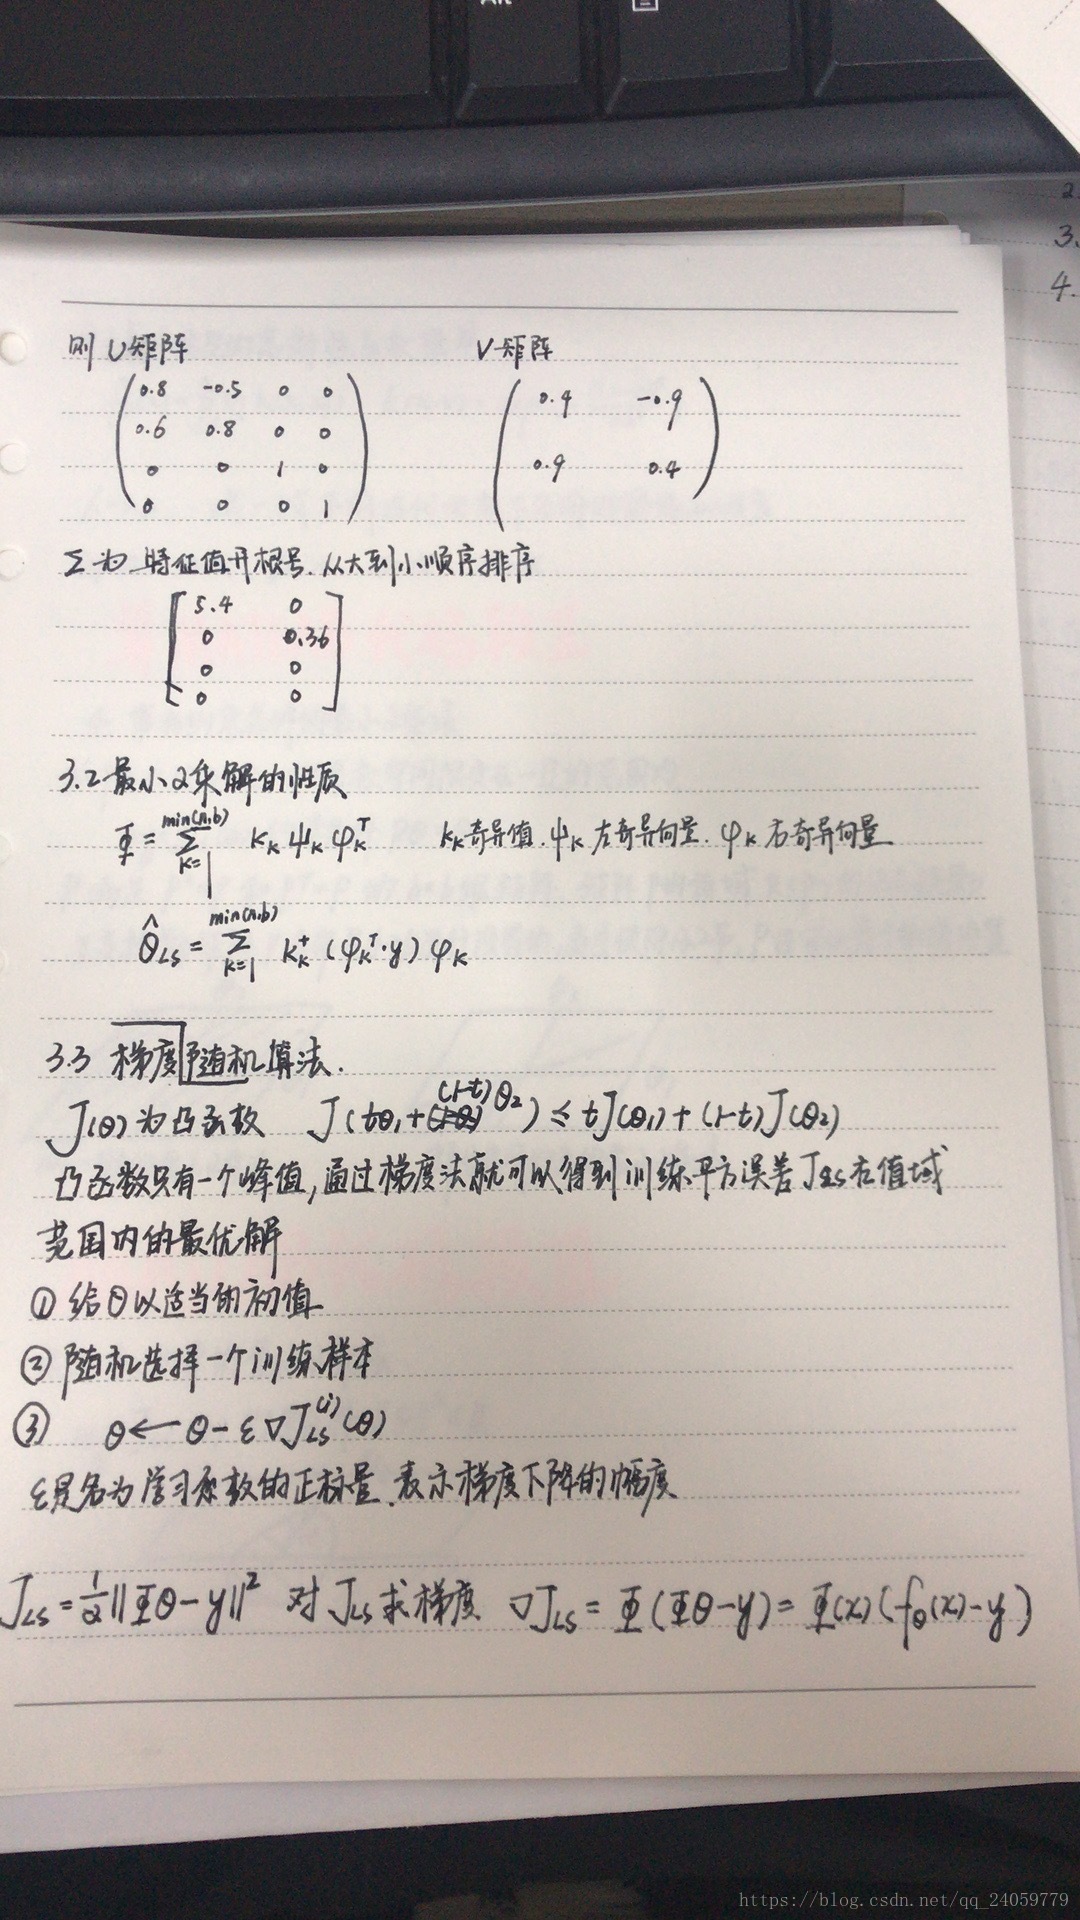 Alt
2
3.
4.
则 U矩阵 V矩阵
0.8 -0.5 0 0
0.6 0.8 0 0
0 0 1 0
0 0 0 1
0.4 -0.9
0.9 0.4
Σ为 特征值开根号.从大到小顺序排序
5.4 0
0 0.36
0 0
0 0
3.2 最小2乘解的性质
Φ = Σ_{k=1}^{min(n,b)} κ_k ψ_k φ_k^T κ_k奇异值.ψ_k左奇异向量.φ_k右奇异向量
θ̂_LS = Σ_{k=1}^{min(n,b)} κ_k^+ (φ_k^T·y) φ_k
3.3 梯度随机算法.
J(θ)为凸函数 J(tθ₁+(1-t)θ₂) ≤ tJ(θ₁)+(1-t)J(θ₂)
凸函数只有一个峰值,通过梯度法就可以得到训练平方误差J_LS在值域
范围内的最优解
① 给θ以适当的初值
② 随机选择一个训练样本
③ θ←θ-ε∇J_LS^(i)(θ)
ε是名为学习系数的正标量.表示梯度下降的幅度
J_LS = 1/2||Φθ-y||² 对J_LS求梯度 ∇J_LS = Φ(Φθ-y) = Φ(x)(f_θ(x)-y)
https://blog.csdn.net/qq_24059779